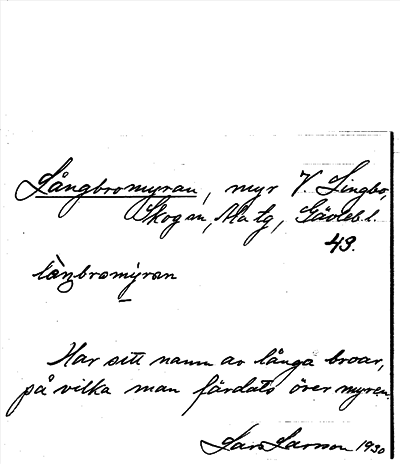 Långbromyran, myr V. Lingbo,
Skog sn, Ala tg, Gävleb. l.
49.
låŋbromýran
Har sitt namn av långa broar,
på vilka man färdats över myren.
Lars Larsson 1930